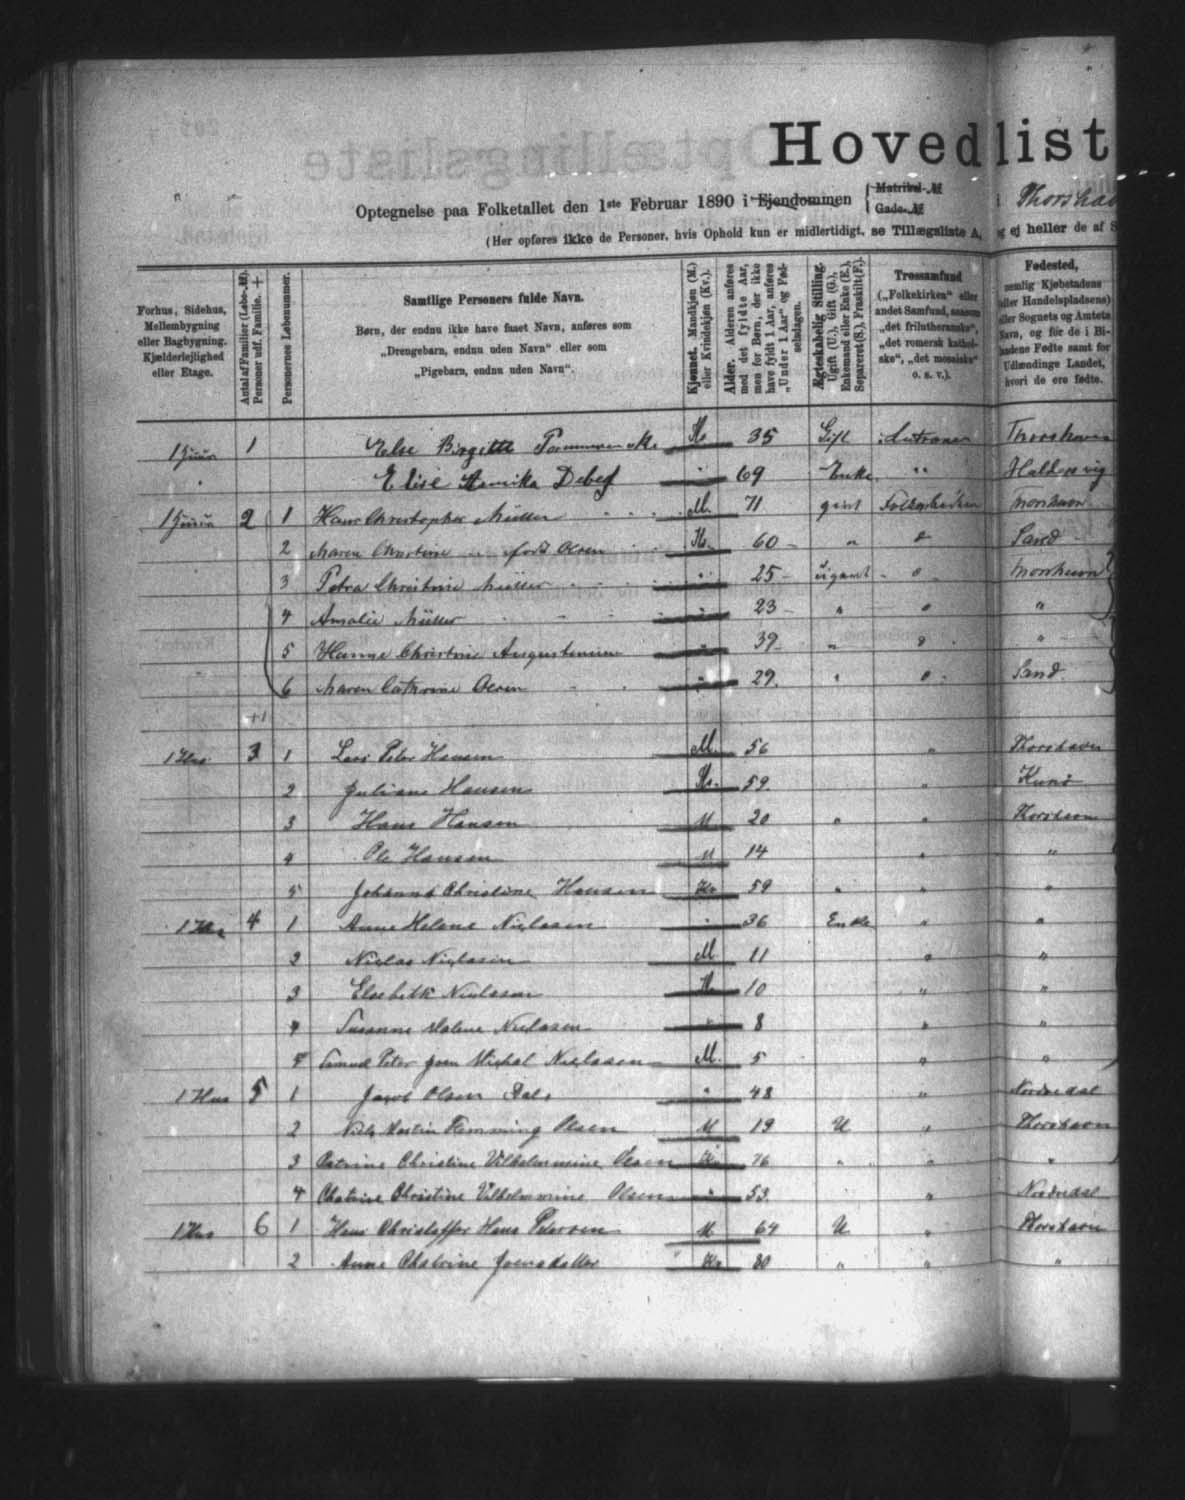 Hovedlist
Optegnelse paa Folketallet den 1ste Februar 1890 i Ejendommen { Matrikel-№ Gade-№ i Thorshav
(Her opføres ikke de Personer, hvis Ophold kun er midlertidigt, se Tillægsliste A, og ej heller de af S
Forhus, Sidehus, Mellembygning eller Bagbygning. Kjælderlejlighed eller Etage.
Antal af Familier (Løbe-№). Personer udf. Familie. +
Personernes Løbenummer.
Samtlige Personers fulde Navn.
Børn, der endnu ikke have faaet Navn, anføres som
„Drengebarn, endnu uden Navn“ eller som
„Pigebarn, endnu uden Navn“.
Kjønnet. Mandkjøn (M.) eller Kvindekjøn (Kv.).
Alder. Alderen anføres med det fyldte Aar, men for Børn, der ikke have fyldt 1 Aar, anføres „Under 1 Aar“ og Fødselsdagen.
Ægteskabelig Stilling. Ugift (U.), Gift (G.), Enkemand eller Enke (E.), Separeret (S.), Fraskilt (F.).
Trossamfund („Folkekirken“ eller andet Samfund, saasom „det frilutheranske“, „det romersk katholske“, „det mosaiske“ o. s. v.).
Fødested, nemlig Kjøbstadens eller Handelspladsens) eller Sognets og Amtets Navn, og for de i Bilandene Fødte samt for Udlændinge Landet, hvori de ere fødte.
1 1 Else Birgitte 35 Gift Thorshavn
Elise Debes " 69 Enke " "
2 1 Hans Christopher Müller M. 71 givt Folkekirken Thorshavn
2 Maren Christine født Olsen Kv. 60 " " Sand
3 Petra Christine Müller " 25 ugivt " Thorshavn
4 Amalie Müller " 23 " " "
5 Hanne Christine Augustinus " 39 " " "
6 Maren Cathrine Olsen " 29 " " Sand
1 Hus 3 1 Lars Peter Hansen M. 56 " Thorshavn
2 Juliane Hansen Kv. 59 " Kunø
3 Hans Hansen M 20 " " Thorshavn
4 Ole Hansen M 14 " "
5 Johanna Christine Hansen Kv 59 " " "
1 Hus 4 1 Anne Helene Niclasen " 36 Enke " "
2 Niclas Niclasen M 11 " "
3 Elsebeth Niclasen Kv 10 " "
4 Susanne Malene Niclasen " 8 " "
Peter Michal Niclasen M. 5 " "
1 Hus 5 1 Jacob Olsen " 48 " Nordredal
2 Niels Martin Flemming Olsen M 19 U " Thorshavn
3 Catrine Christine Vilhelmmine Olsen Kv 76 " " "
4 Christine Vilhelmmine Olsen " 53 " Nordredal
1 Hus 6 1 Hans Christoffer Hans Petersen M 64 U " Thorshavn
2 Anne Cathrine Joensdatter Kv 80 " " "